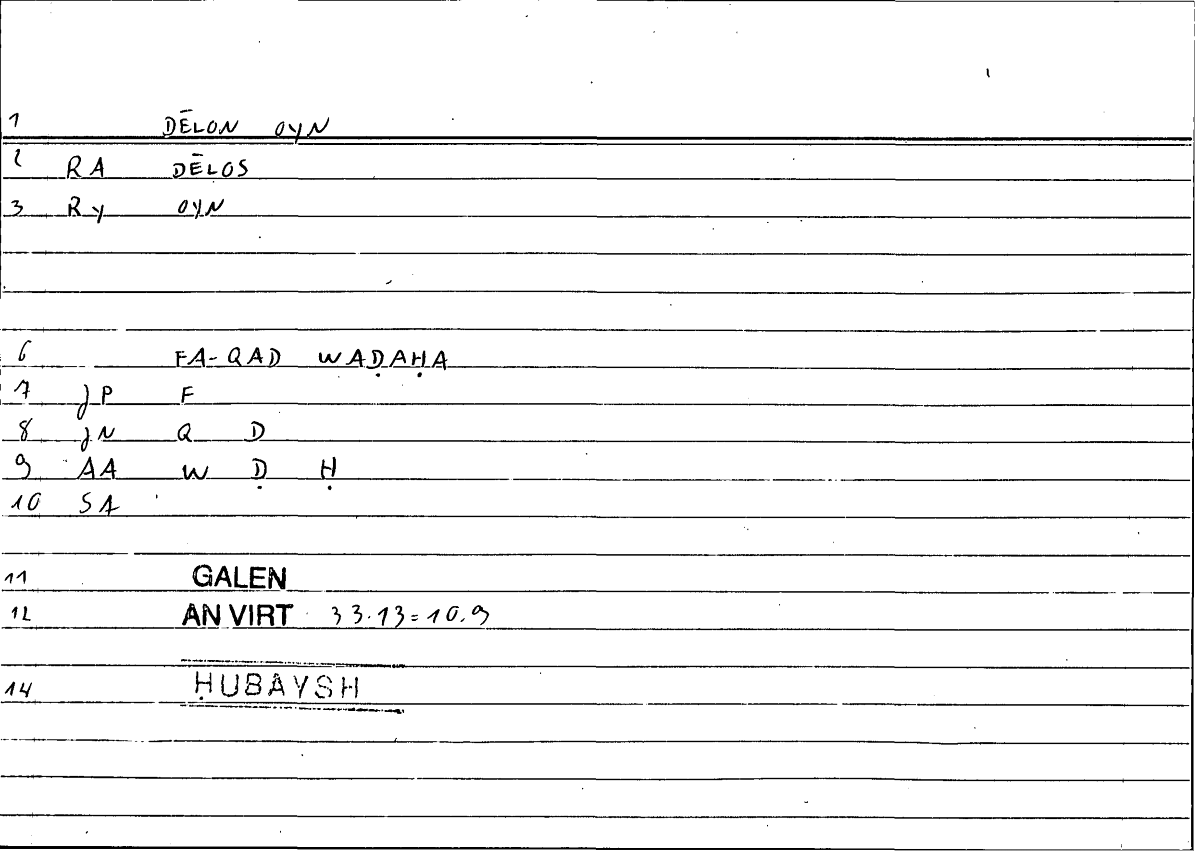 1 DĒLON OYN
2 RA DĒLOS
3 Ry OYN
6 FA-QAD WAḌAḤA
7 JP F
8 JN Q D
9 AA W Ḍ Ḥ
10 SA
11 GALEN
12 AN VIRT 33.13=10.9
14 ḤUBAYSH